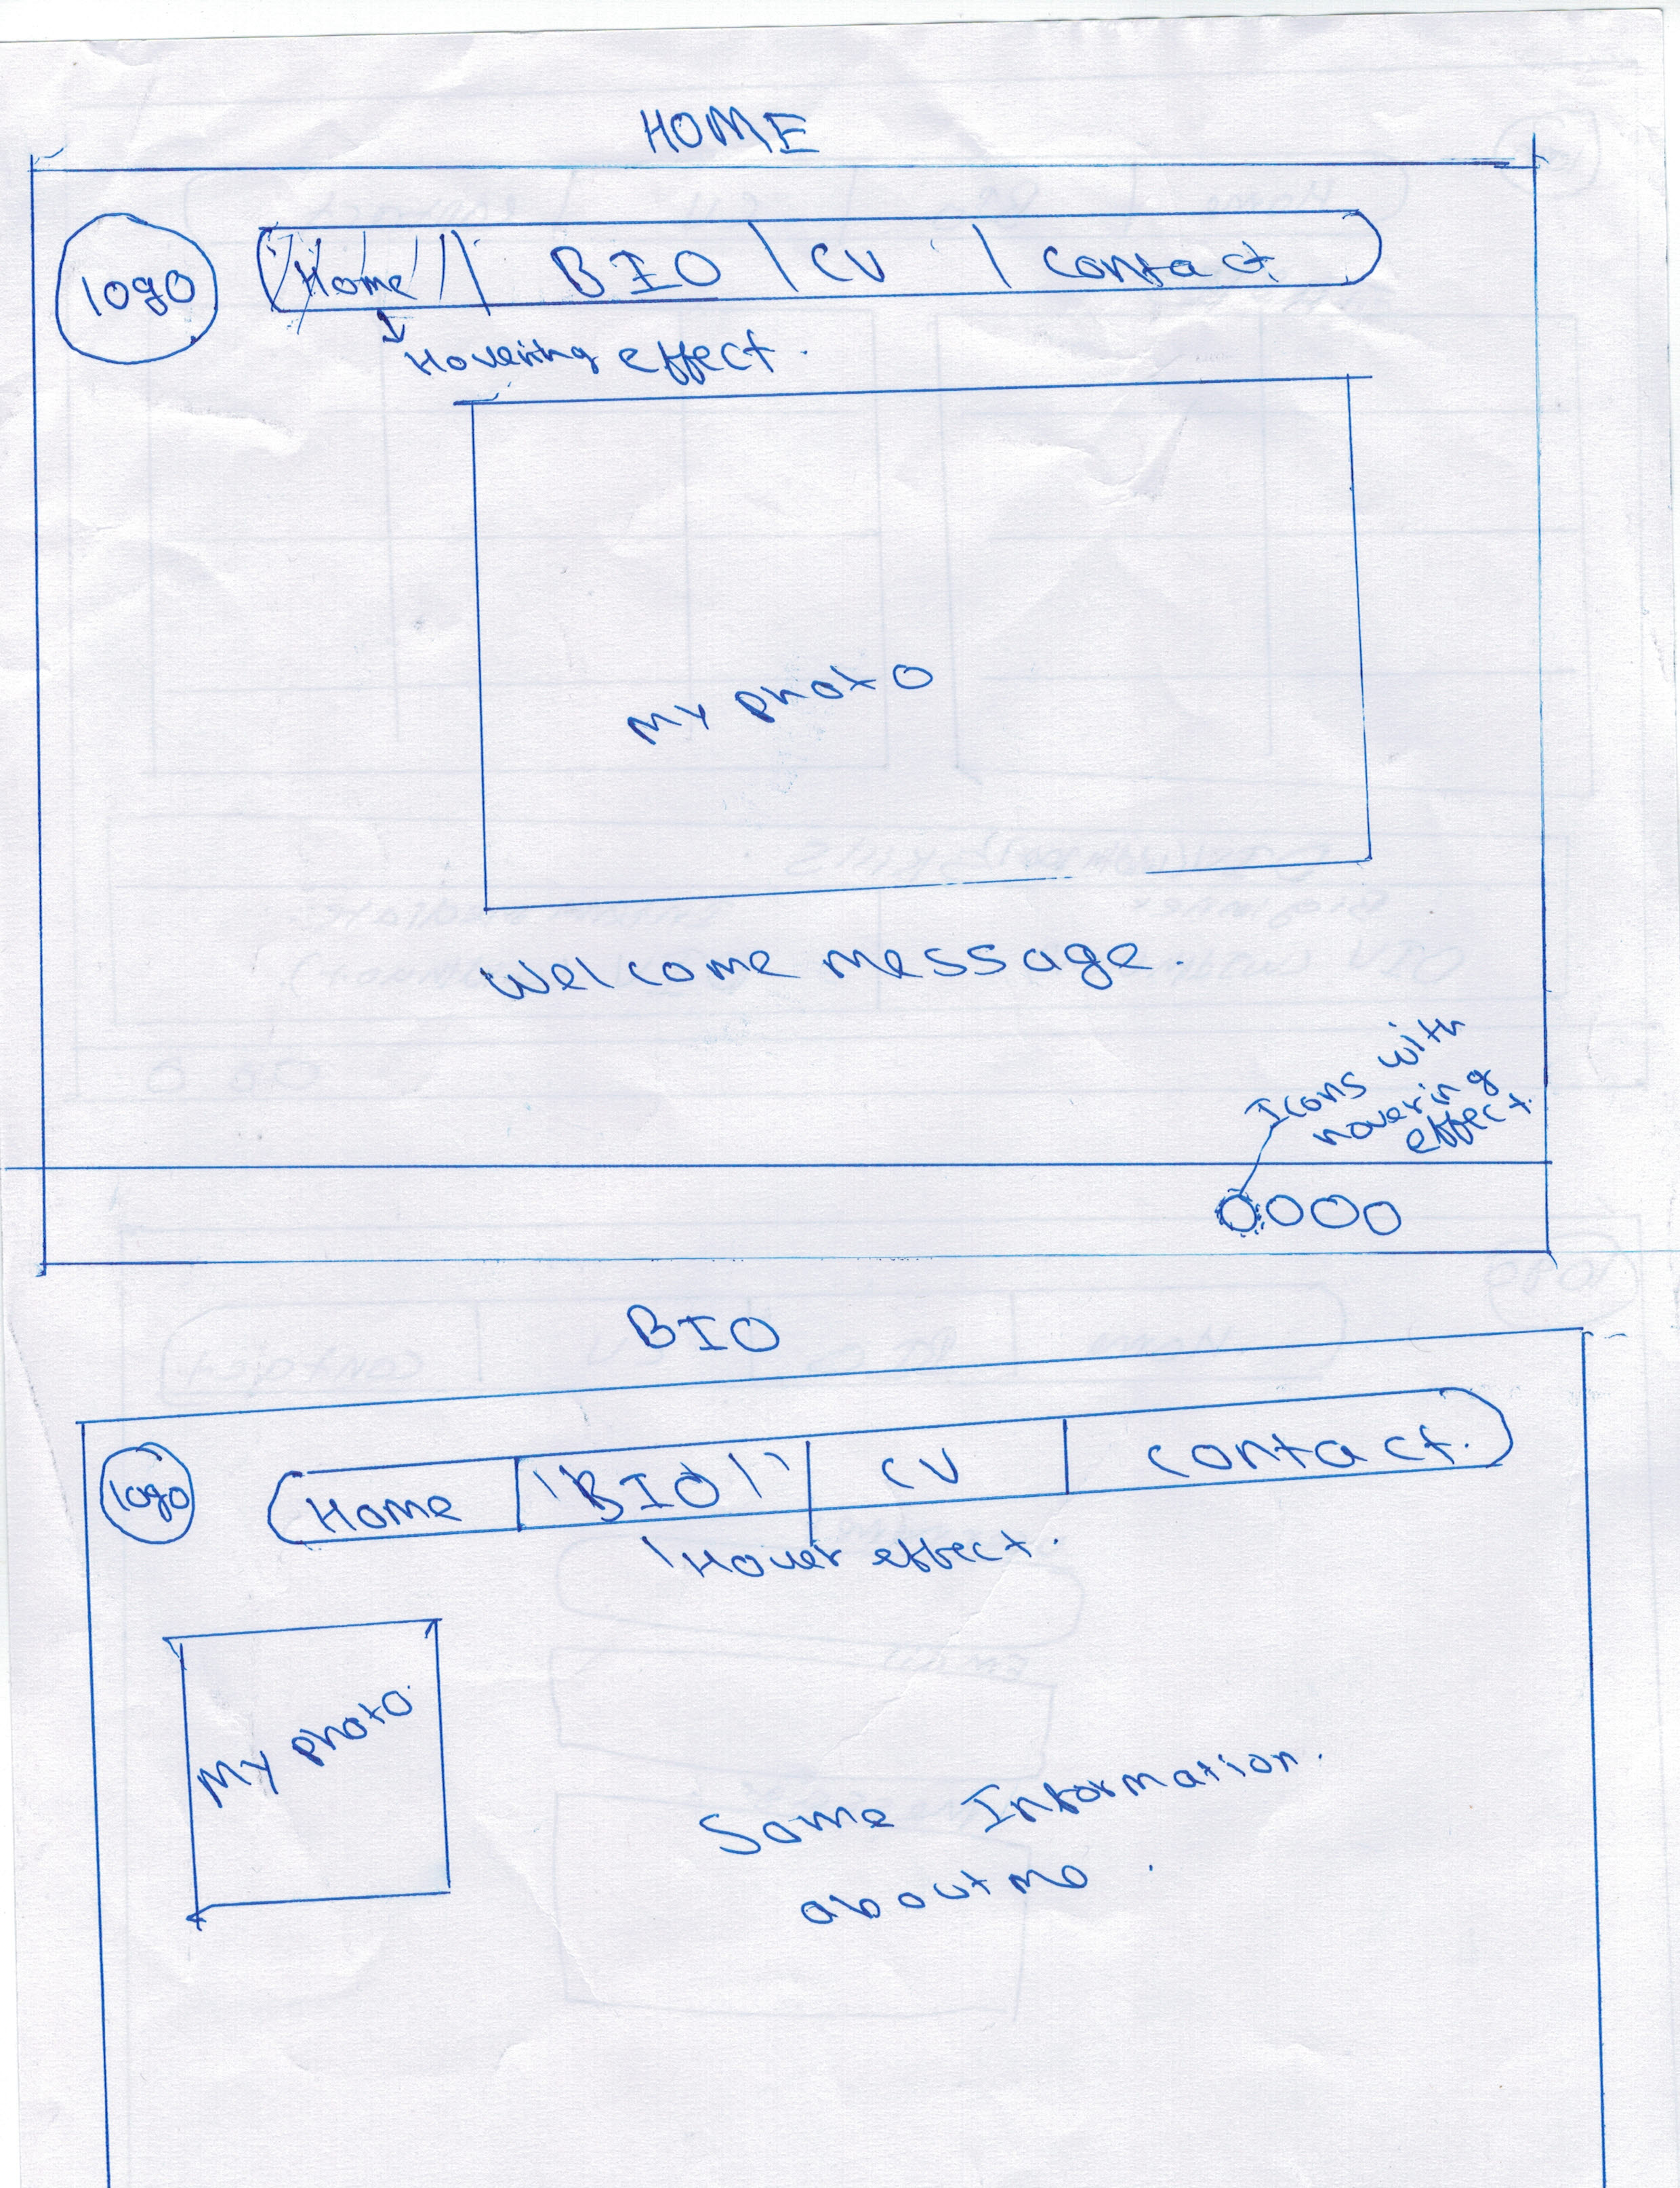 HOME
logo
Home BIO CV Contact
Hovering effect.
My photo
Welcome message.
Icons with
hovering
effect.
BIO
logo
Home BIO CV Contact.
Hover effect.
My photo
Some Information.
about me.